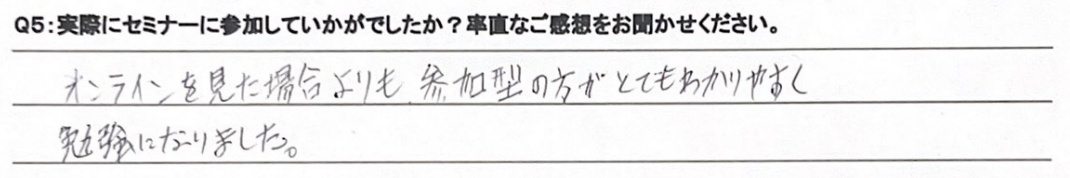 Q5:実際にセミナーに参加していかがでしたか?率直なご感想をお聞かせください。
オンラインを見た場合よりも参加型の方がとてもわかりやすく
勉強になりました。